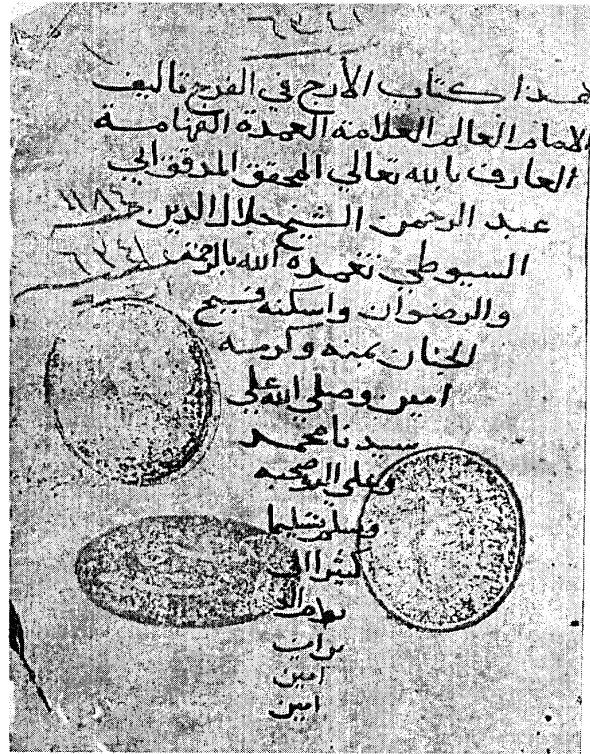 هذا كتاب الأرج في الفرج تأليف
الامام العالم العلامة العمدة الفهامة
العارف بالله تعالي المحقق المدقق ابي
عبد الرحمن الشيخ جلال الدين
السيوطي تغمده الله بالرحمة
والرضوان واسكنه فسيح
الجنان بمنه وكرمه
امين وصلي الله علي
سيدنا محمد
وعلي اله وصحبه
وسلم تسليما
كثيرا الي
يوم الد
امين
امين